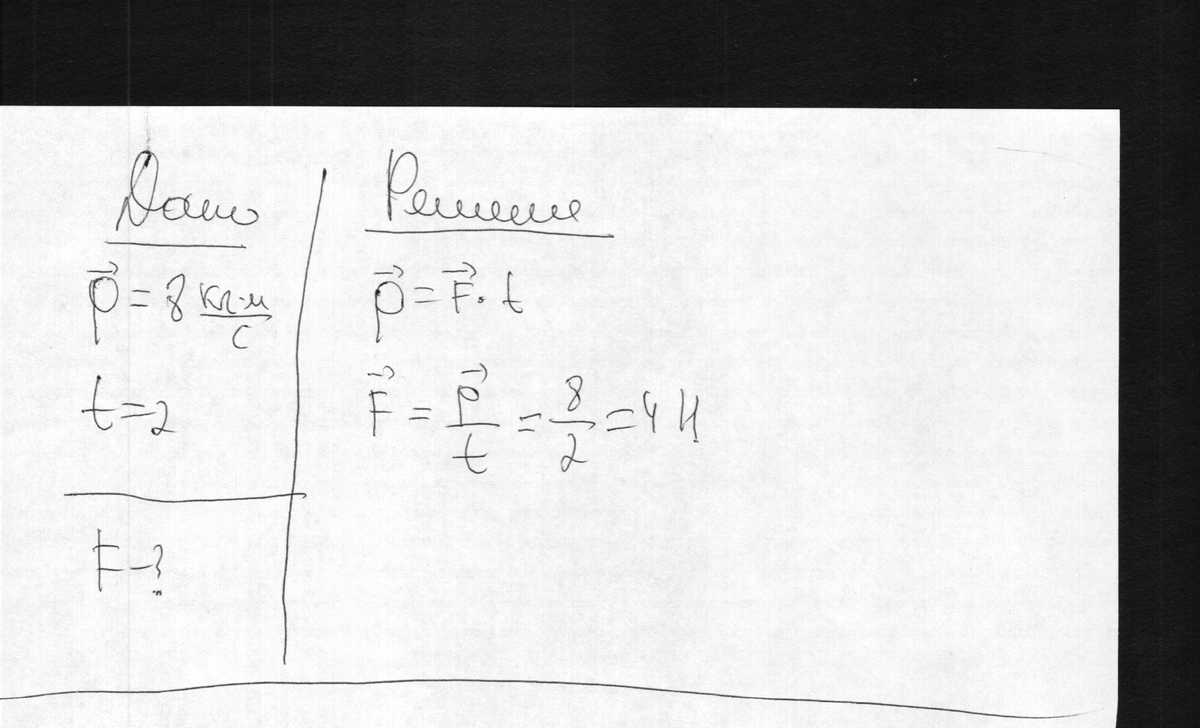 Дано
p⃗ = 8 кг·м/с
t = 2
F - ?
Решение
p⃗ = F⃗ · t
F⃗ = p⃗/t = 8/2 = 4 Н